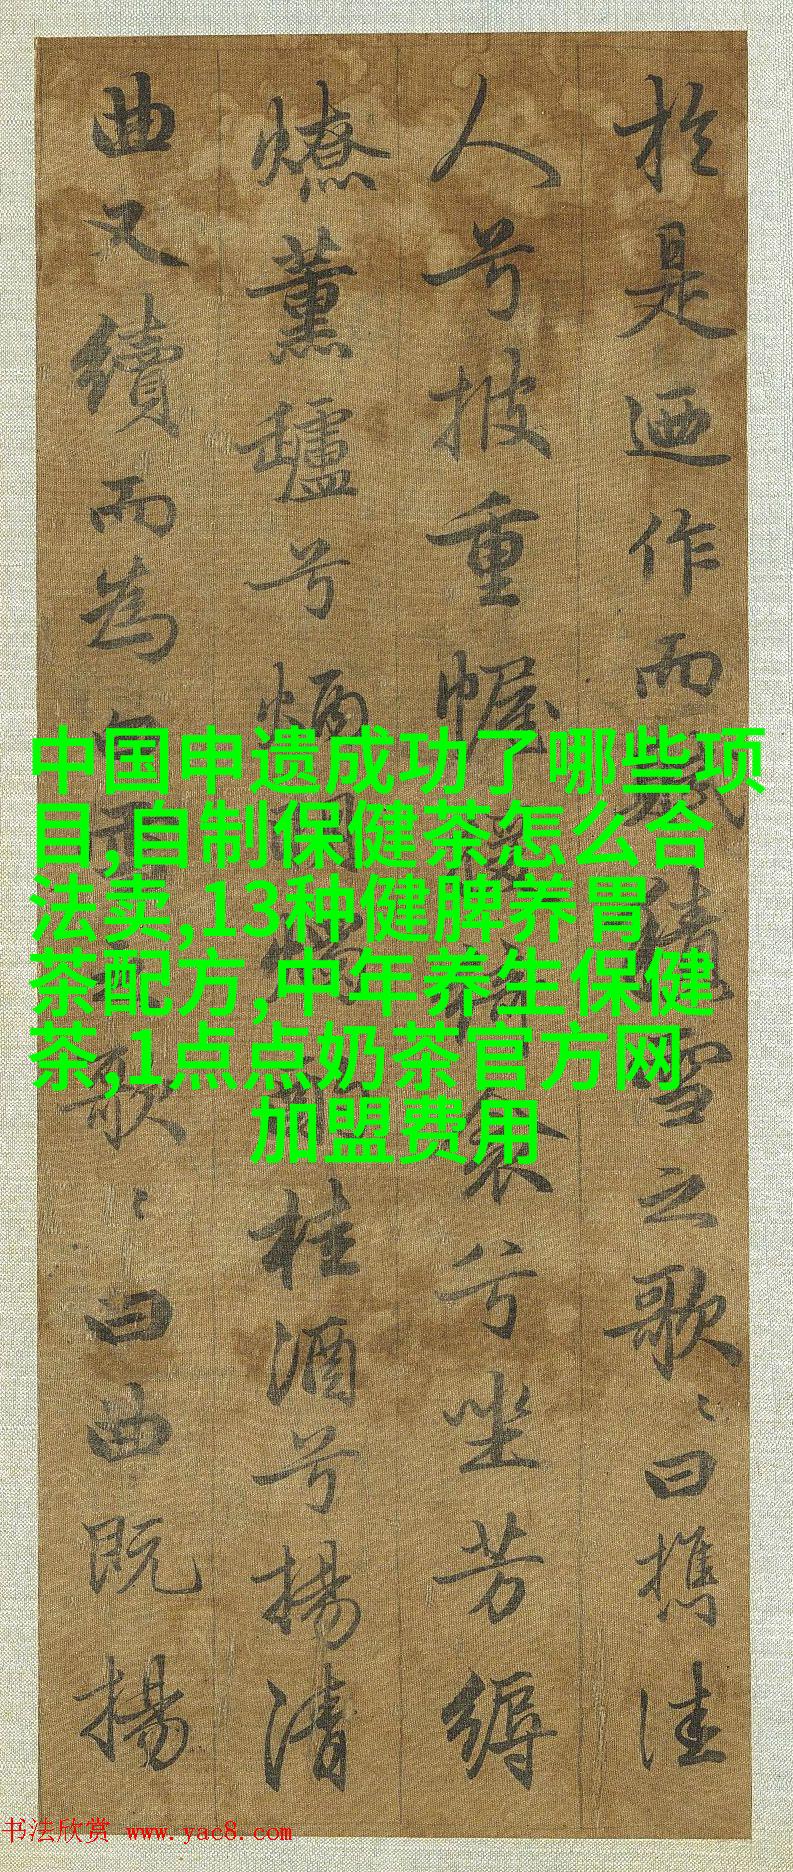 於是迺作而賦積雪之歌〻曰攜佳
人兮披重幄衾兮坐芳縟
燎薰鑪兮桂酒兮揚清
曲又續而為歌〻曰曲既揚
中国申遗成功了哪些项
目,自制保健茶怎么合
法卖,13种健脾养胃
茶配方,中年养生保健
茶,1点点奶茶官方网
加盟费用
书法欣赏 www.yac8.com